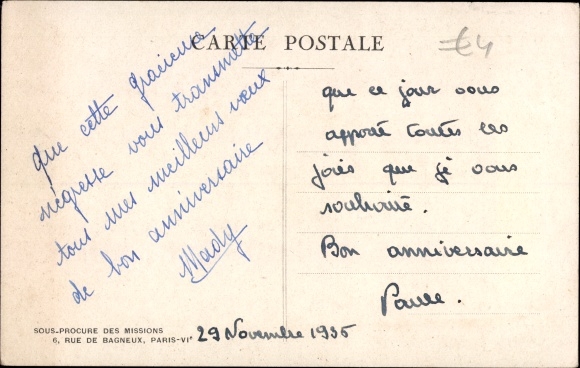 CARTE POSTALE
€4
Que cette gracieuse
négresse vous transmette
tous mes meilleurs vœux
de bon anniversaire
Mady
que ce jour vous
apporte toutes les
joies que je vous
souhaite.
Bon anniversaire
Paule.
29 Novembre 1935
SOUS-PROCURE DES MISSIONS
6, RUE DE BAGNEUX, PARIS-VIe